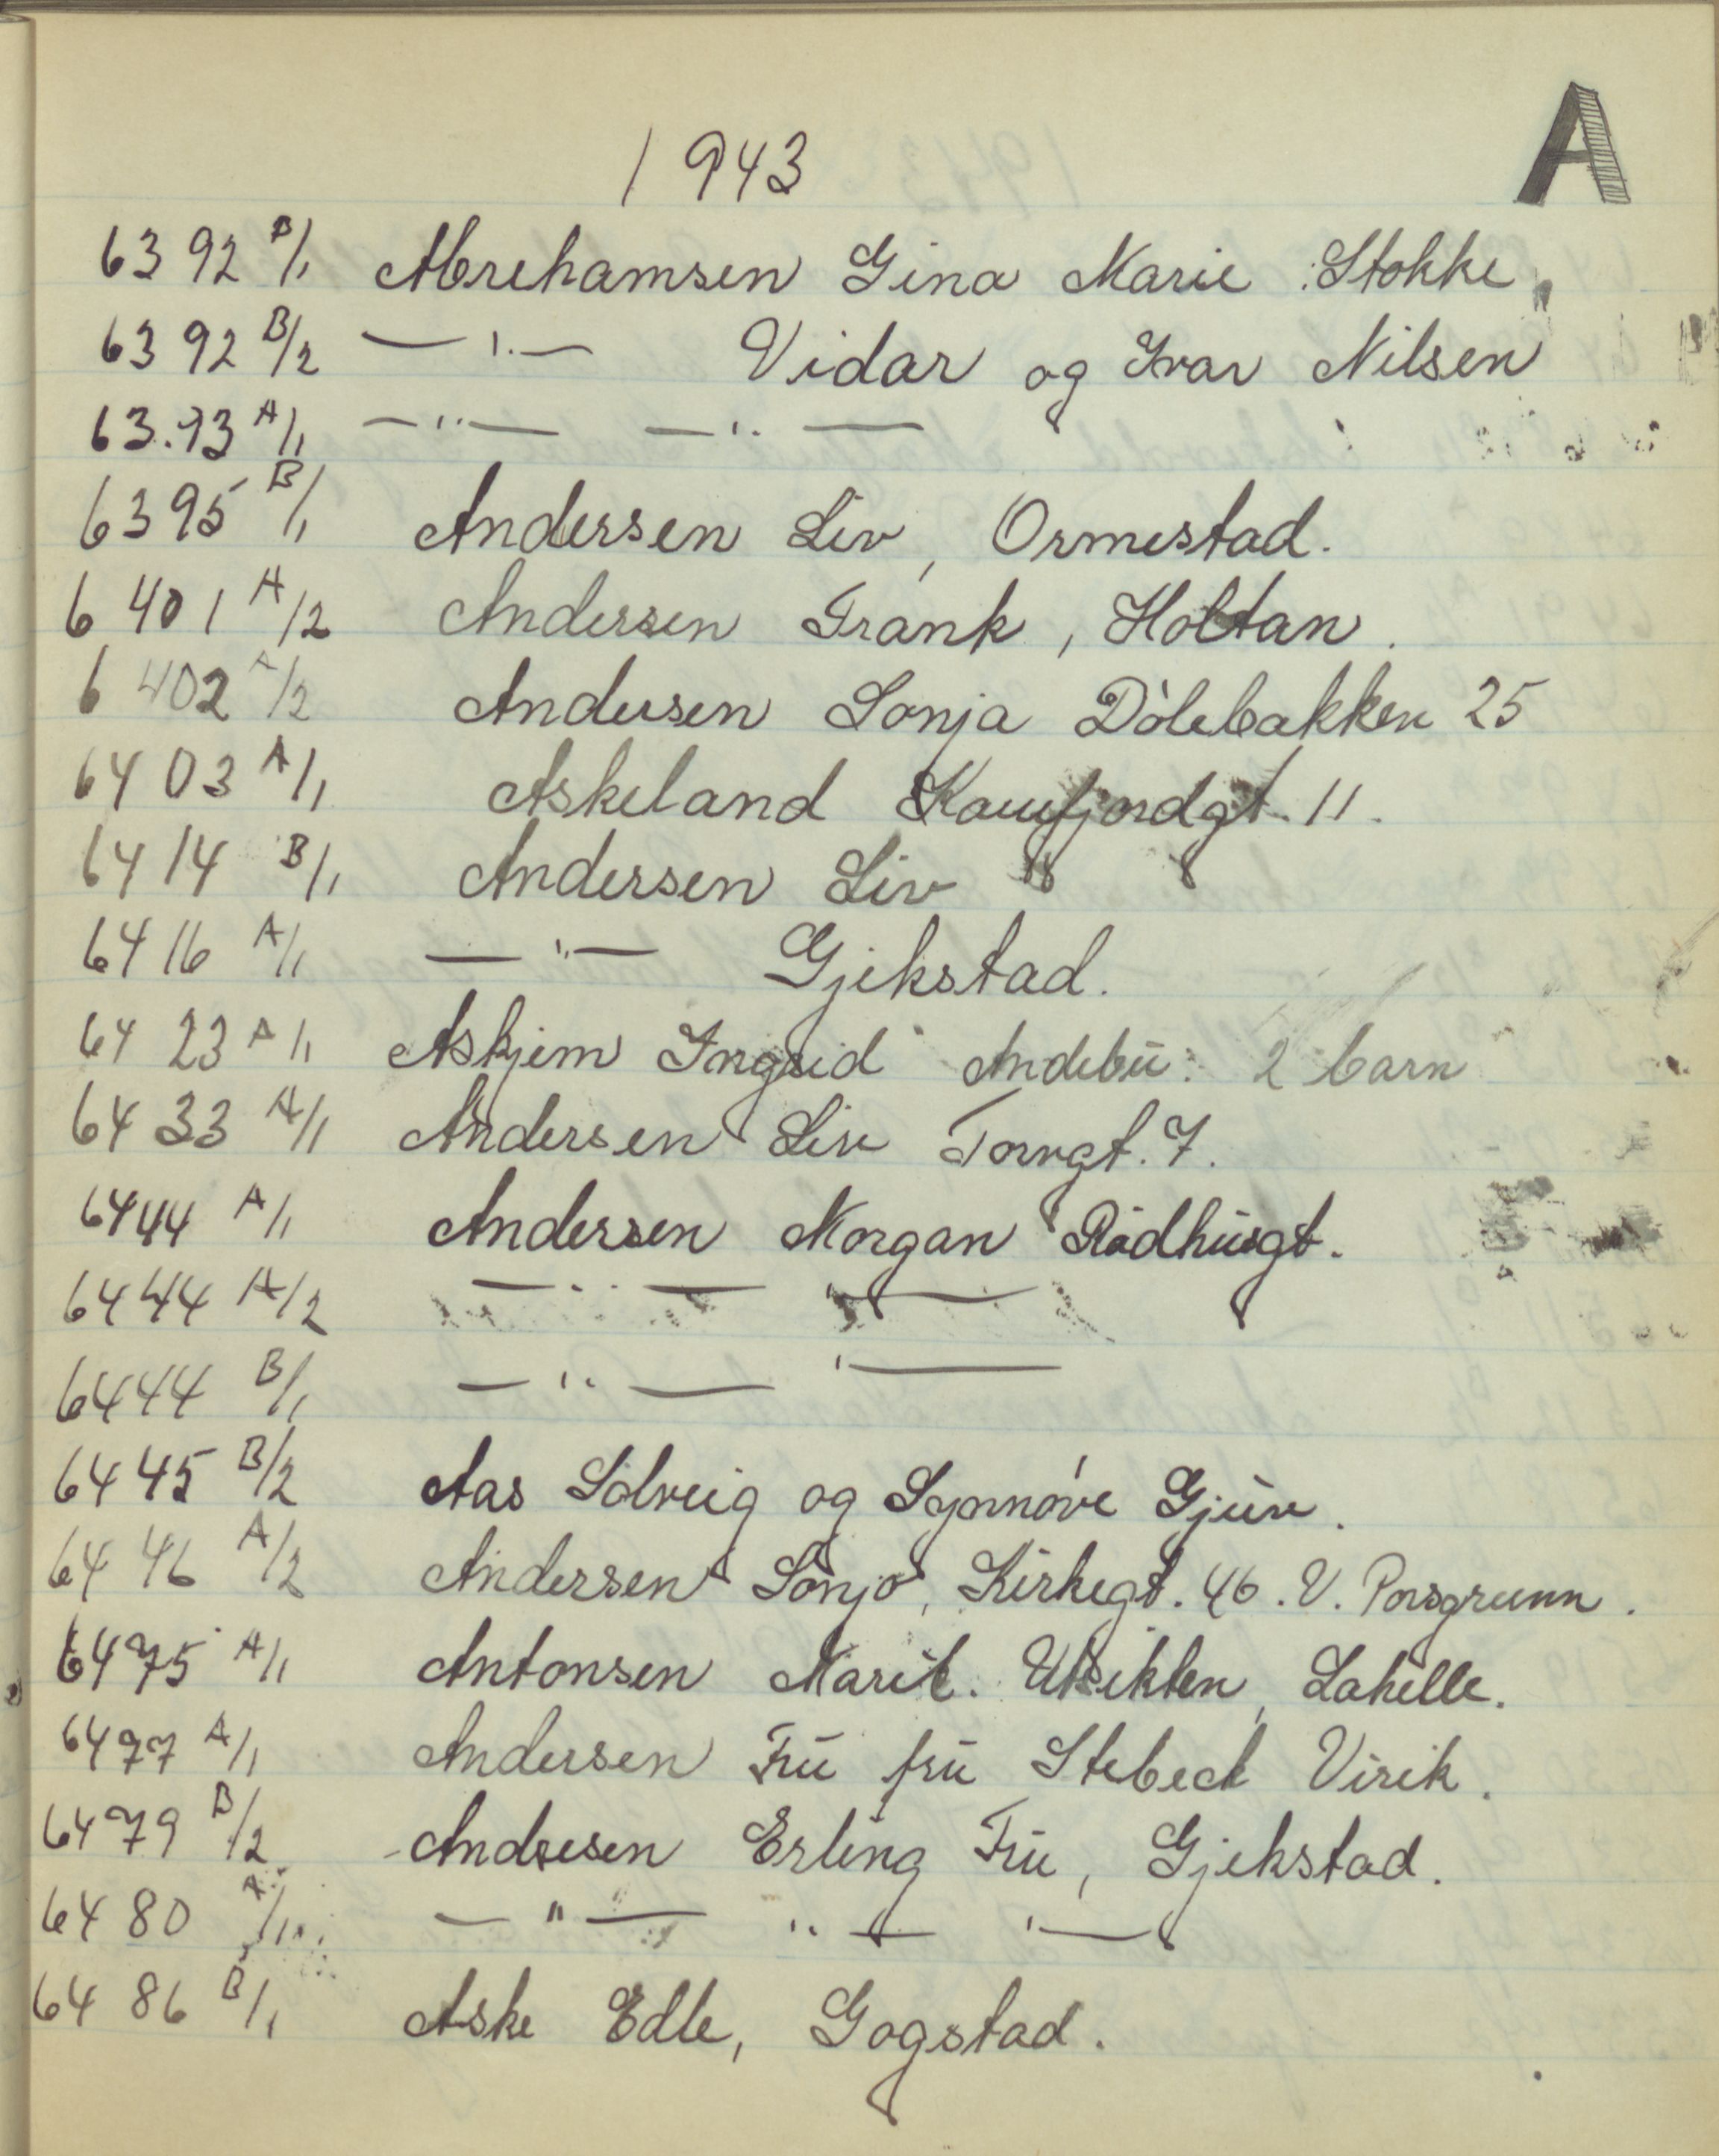 A
1943
6392 B/1 Abrehamsen Gina Marie Stokke
6392 B/2 — " — Vidar og Ivar Nilsen
6393 A/1 — " — — " —
6395 B/1 Andersen Liv, Ormestad.
6401 A/2 Andersen Frank, Holtan.
6402 A/2 Andersen Sonja Dølebakken 25
6403 A/1 Askeland Kamfjordgt. 11.
6414 B/1 Andersen Liv
6416 A/1 — " — Gjekstad.
6423 A/1 Askjem Ingrid Andebu: 2 barn
6433 A/1 Andersen Liv Torvgt. 7.
6444 A/1 Andersen Morgan Rådhusgt.
6444 A/2 — " — — " —
6444 B/1 — " — " —
6445 B/2 Aas Solveig og Synnøve Gjuv.
6446 A/2 Andersen Sonja, Kirkegt. 46. V. Porsgrunn.
6475 A/1 Antonsen Marit. Utsikten, Lahelle.
6477 A/1 Andersen Fru fru Stebeck Virik.
6479 B/2 Andresen Erling Fru, Gjekstad.
6480 A/1 — " — " — " —
6486 B/1 Aske Edle, Gogstad.